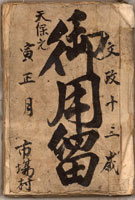 文政十三歳
御用留
天保元
寅正月
市場村